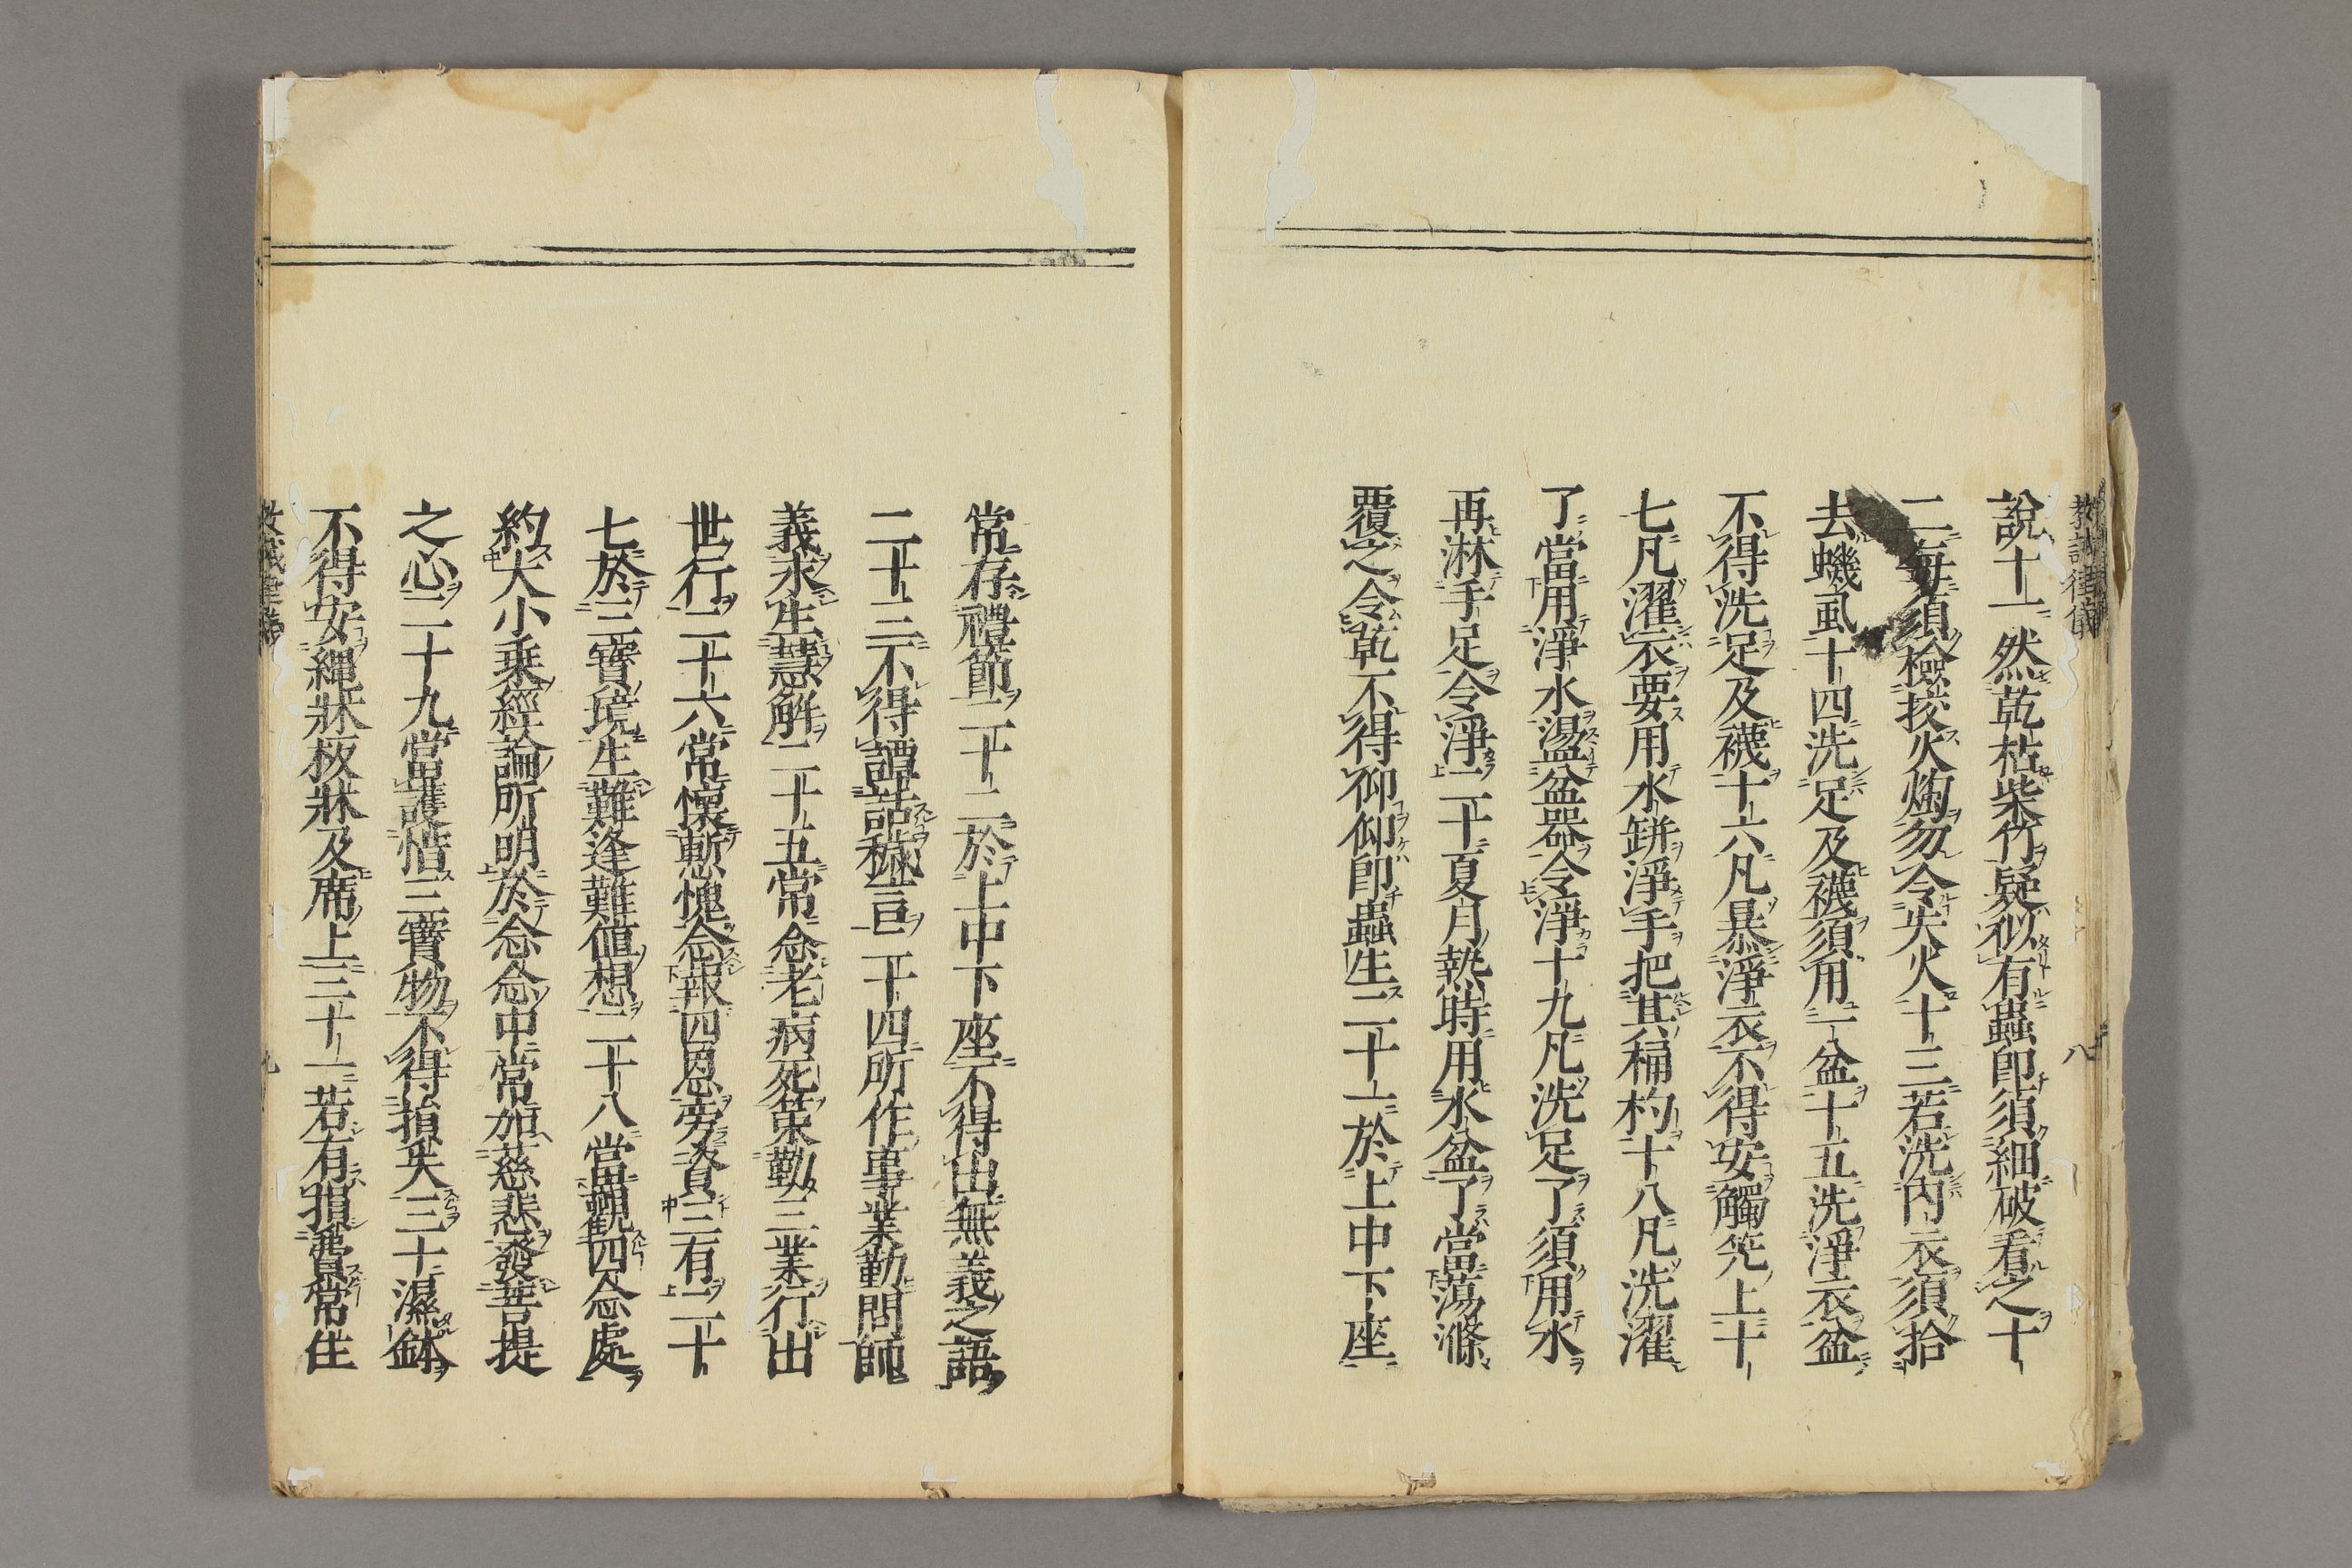 教誡律儀
八
說十一然乾枯柴竹疑似有蟲卽須細破看之十
二每須檢挍火燭勿令失火十三若洗內衣須拾
去蟣虱十四洗足及襪須用一盆十五洗淨衣盆
不得洗足及襪十六凡暴淨衣不得安觸笐上十
七凡濯衣要用水缾淨手把其桶杓十八凡洗濯
了當用淨水盪盆器令淨十九凡洗足了須用水
再淋手足令淨二十夏月熱時用水盆了當蕩滌
覆之令乾不得仰仰卽蟲生二十一於上中下座
常存禮節二十二於上中下座不得出無義之語
二十三不得譚話穢言二十四所作事業勤問師
義求生慧解二十五常念老病死策勤三業行出
世行二十六常懷慚愧念報四恩旁資三有二十
七於三寶境生難逢難値想二十八當觀四念處
約大小乘經論所明於念念中常加慈悲發菩提
之心二十九當護惜三寶物不得損失三十濕鉢
不得安繩牀板牀及席上三十一若有損費常住